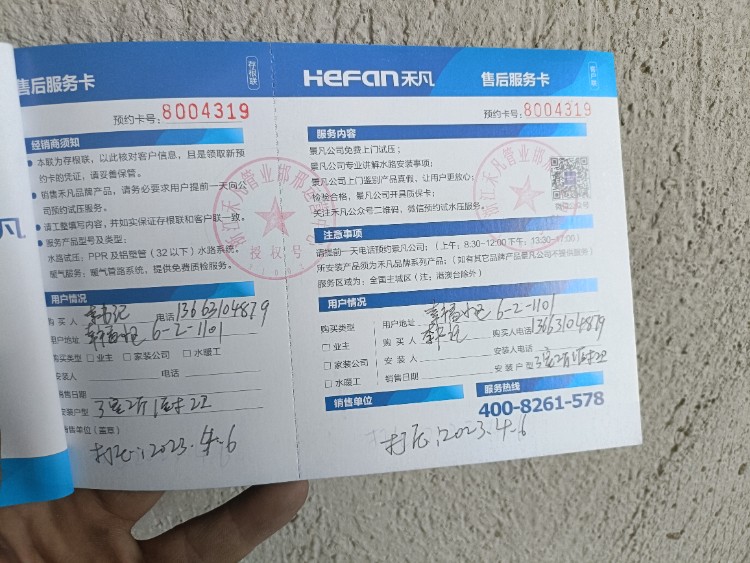 售后服务卡
存根联
预约卡号：8004319
经销商须知
本联为存根联，以此核对客户信息，且是领取新预
约卡的凭证，请妥善保管。
销售禾凡品牌产品，请务必要求用户提前一天向公
司预约试压服务。
请工整填写内容，并如实保证存根联和客户联一致。
服务产品型号及类型：
水路试压：PPR及铝塑管（32以下）水路系统。
暖气服务：暖气管路系统，提供免费质检服务。
用户情况
购买人 电话13663104879
用户地址 幸福小区 6-2-1101
购买类型 业主 家装公司 水暖工
安装人 电话
销售日期
安装户型 3室2厅1厨2卫
销售单位（盖章）
打压：2023.4.6
HEFAN禾凡
售后服务卡
客户联
预约卡号：8004319
服务内容
景凡公司免费上门试压；
景凡公司专业讲解水路安装事项；
景凡公司上门鉴别产品真假，让用户更放心；
检验合格，景凡公司开具质保卡；
关注禾凡公众号二维码，微信预约试水压服务。
注意事项
请提前一天电话预约景凡公司；（上午：8:30-12:00 下午：13:30-17:00）
所安装产品须为禾凡品牌系列产品；（如有其它品牌产品景凡公司不提供服务）
服务区域为：全国主城区（注：港澳台除外）
用户情况
购买类型
业主
家装公司
水暖工
用户地址 幸福小区 6-2-1101
购买人 购买人电话13663104879
安装人 安装人电话
销售日期 安装户型 3室2厅1厨2卫
销售单位
服务热线
400-8261-578
打压：2023.4.6
浙江禾凡管业邯郸
授权号